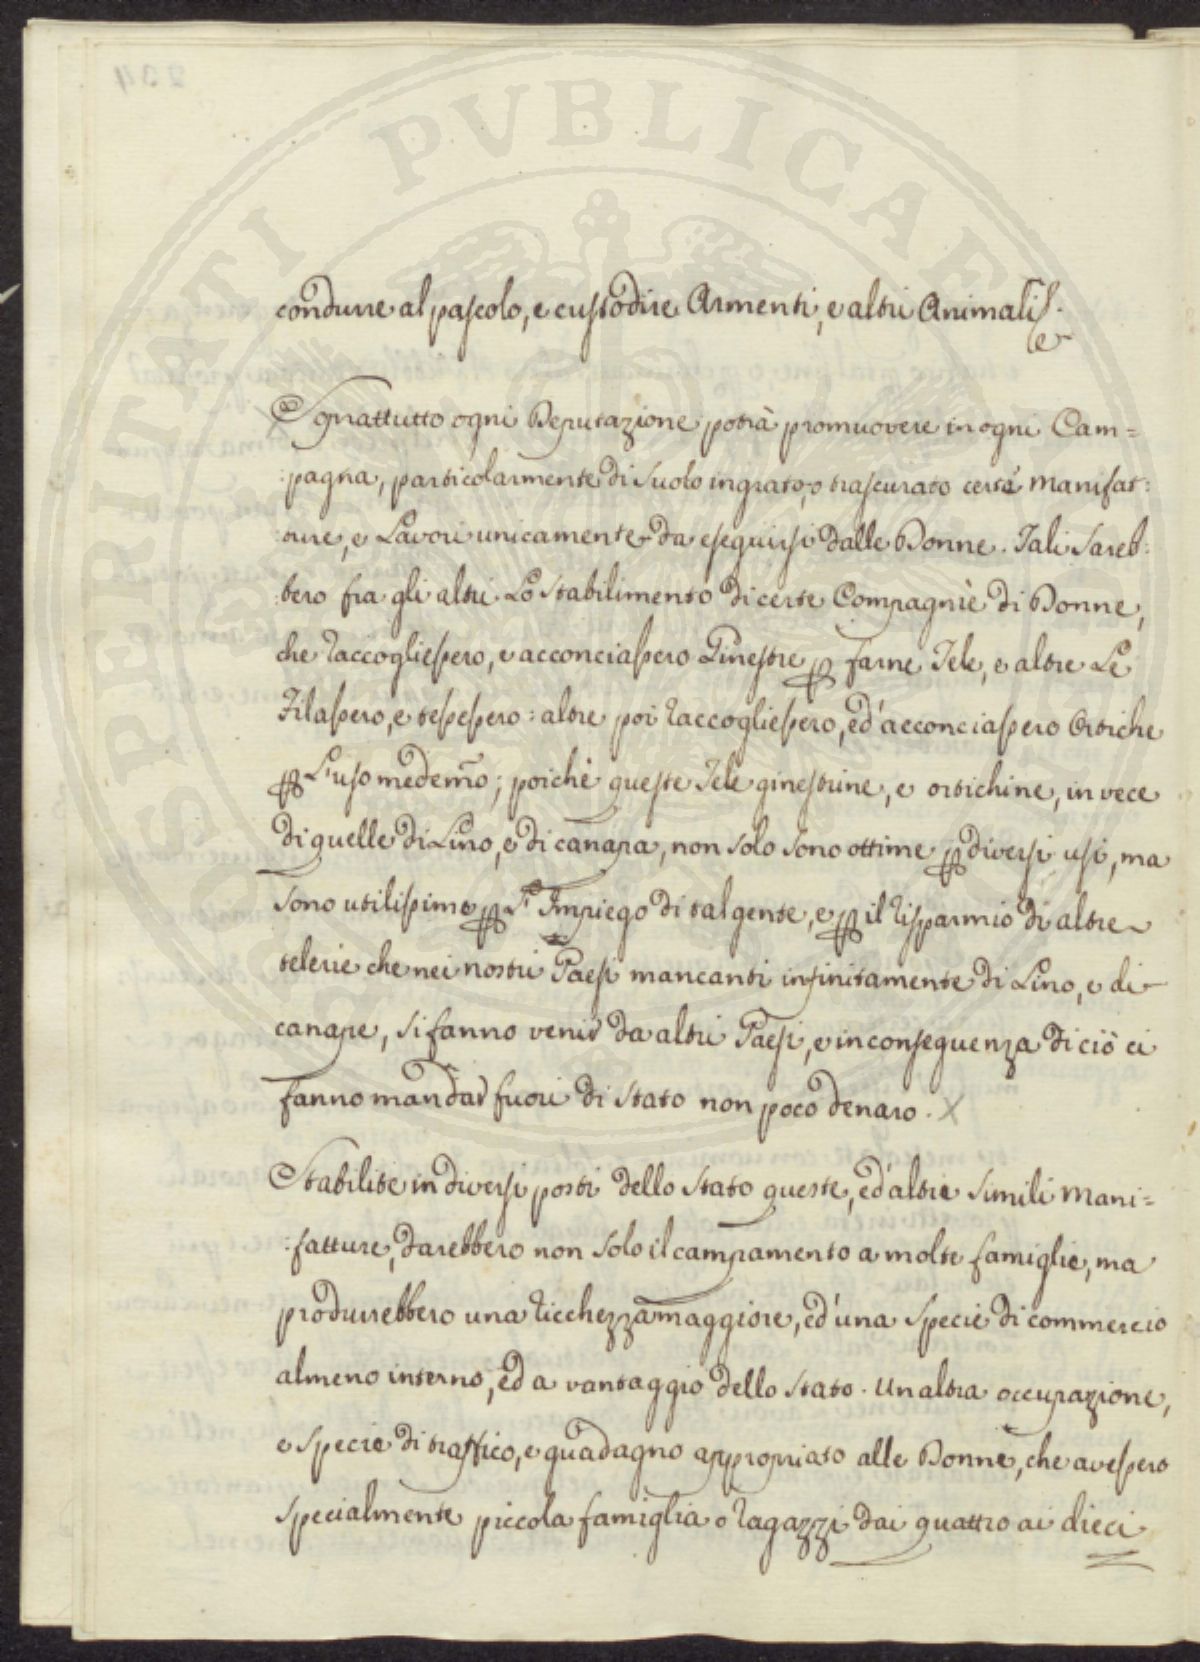 PROSPERITATI PUBLICAE
condurre al pascolo, e custodire Armenti, e altri Animali &c.
Soprattutto ogni Deputazione potrà promuovere in ogni Cam=
:pagna, particolarmente di suolo ingrato, o trascurato certe manifat:
:ture, e Lavori unicamente da eseguirsi dalle Donne. Tali sareb:
:bero fra gli altri Lo stabilimento di certe Compagnie di Donne,
che raccogliessero, e acconciassero Ginestre p farne Tele, e altre Le
Filassero, e tessessero: altre poi raccogliessero, ed acconciassero Ortiche
p L'uso medemo; poichè queste Tele ginestrine, e ortichine, in vece
di quelle di Lino, e di canapa, non solo sono ottime p diversi usi, ma
sono utilissime p L'Impiego di tal gente, e p il risparmio di altre
telerie che nei nostri Paesi mancanti infinitamente di Lino, e di
canape, si fanno venir da altri Paesi, e in conseguenza di ciò ci
fanno mandar fuori di stato non poco denaro. X
Stabilite in diversi posti dello stato queste, ed altre simili mani=
:fatture, darebbero non solo il campamento a molte famiglie, ma
produrrebbero una ricchezza maggiore, ed una specie di commercio
almeno interno, ed a vantaggio dello stato. Un altra occupazione,
e specie di traffico, e guadagno appropriato alle Donne, che avessero
specialmente piccola famiglia o ragazzi dai quattro ai dieci